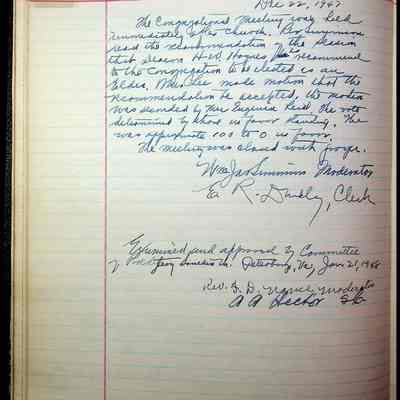 Dec 22, 1947
The Congregational Meeting was held
immediately after church. Rev Simmons
read the recommendation of the Session
that Deacon H.W. Hogues recommend
to the Congregation to be elected as an
Elder. Mr. Lee made motion that the
recommendation be accepted, the motion
was seconded by Mrs Eugenia Reid. The vote
determined by those in favor standing. The
was approximate 100 to 0 in favor.
The meeting was closed with prayer.
Wm Jas Simmons Moderator
E. R. Dandy, Clerk
Examined and approved by Committee
of Petersburg, Va, Jan. 21, 1948
Rev. D. D. Moderator
A A Hector